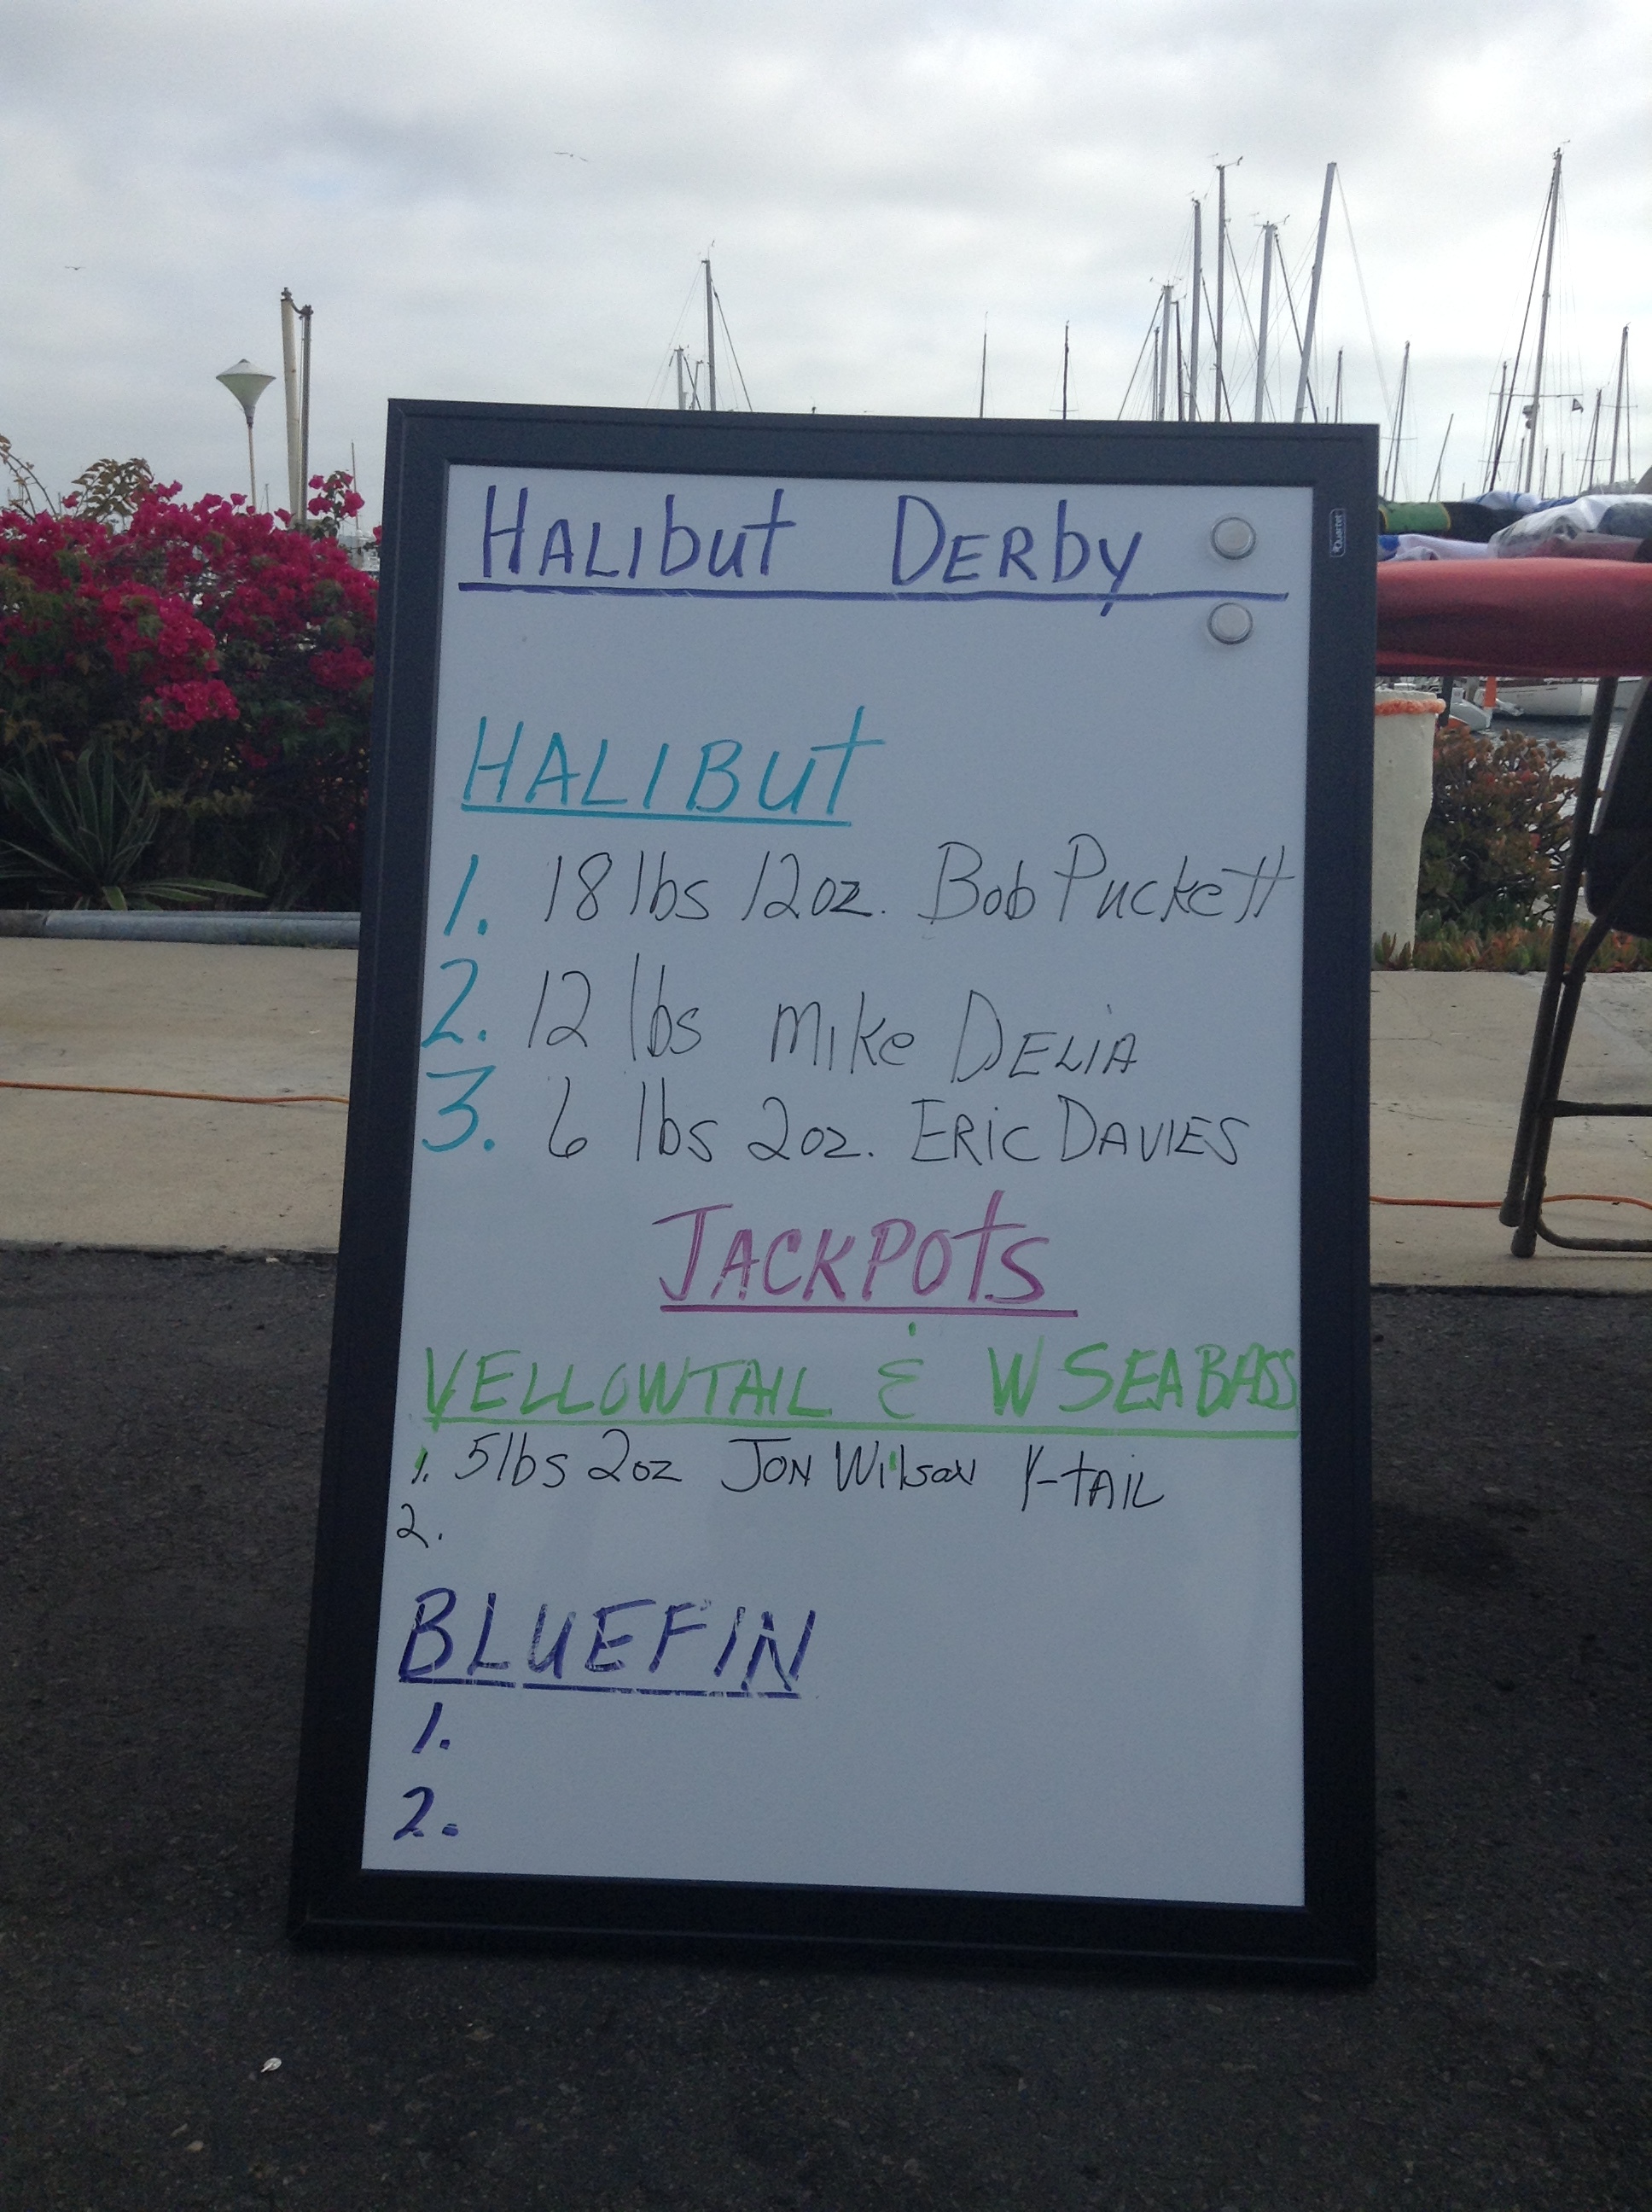 HALIbut DERby
Quartet
HALIBUt
1. 18 lbs 12oz. Bob Puckett
2. 12 lbs Mike DELIA
3. 6 lbs 2oz. ERIC DAVIES
JACKPOtS
YELLOWTAIL & W SEABASS
1. 5lbs 2oz JON Wilson Y-tAIL
2.
BLUEFIN
1.
2.